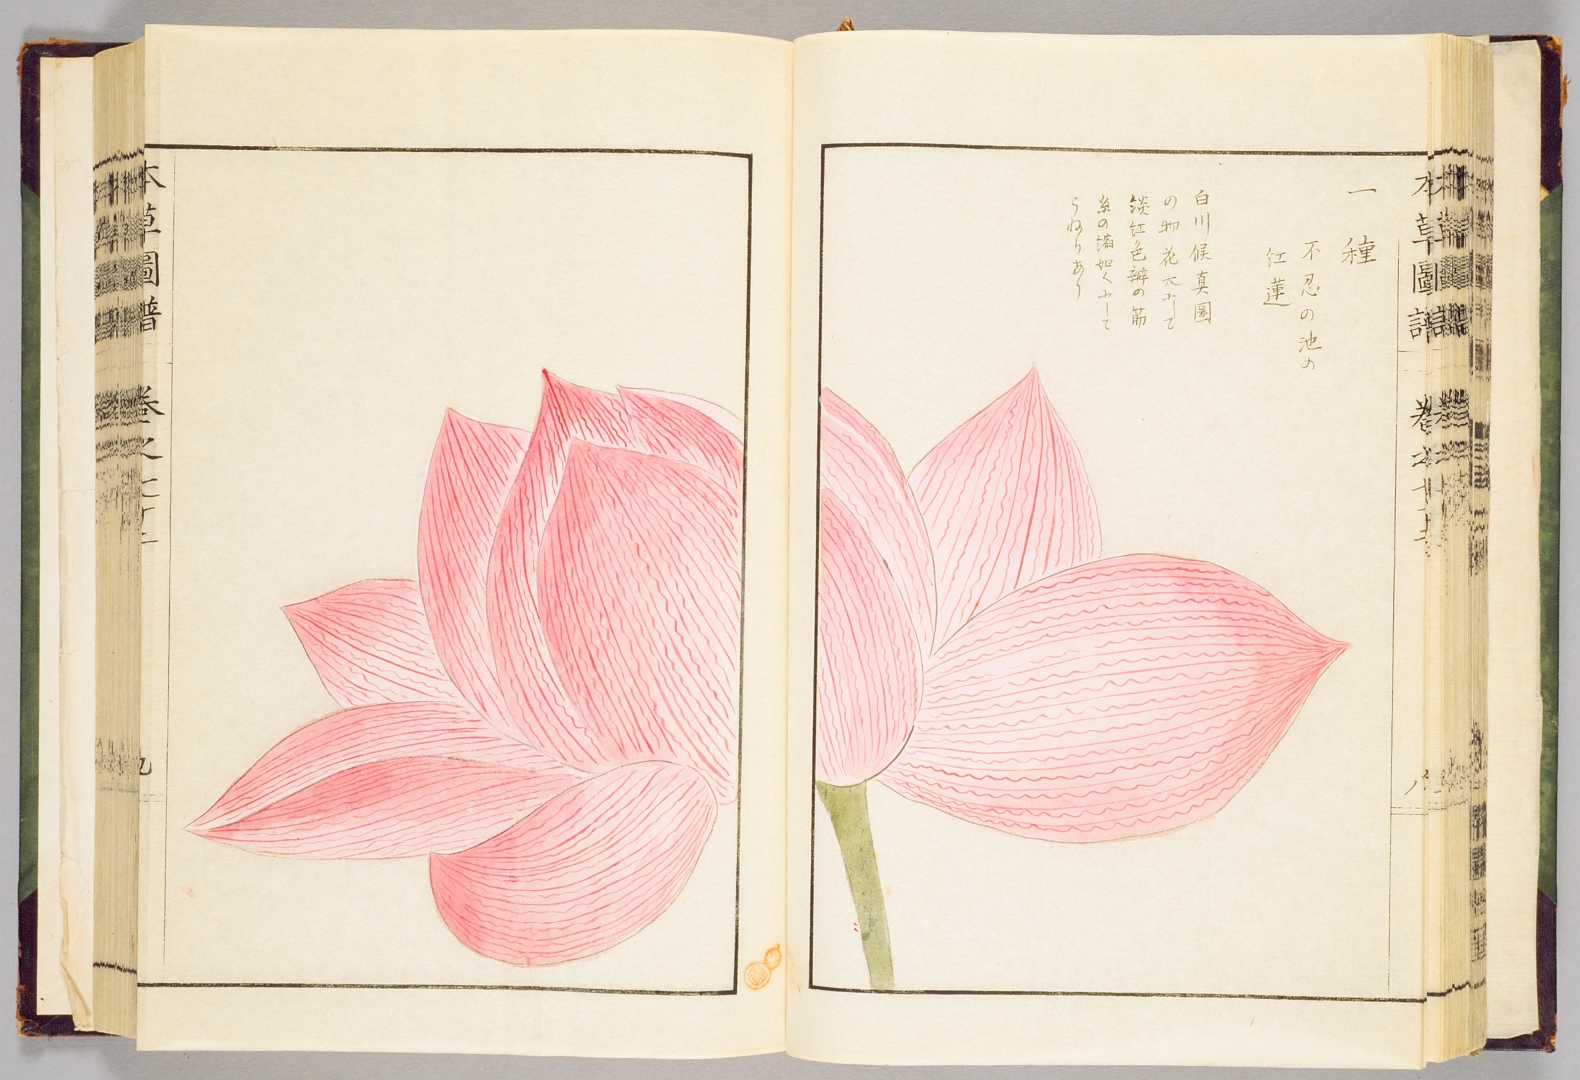 本草圖譜 卷之七十二
一種
不忍の池の
紅蓮
白川候真圖
の物花大にして
淡紅色瓣の筋
糸の縮如くにして
うねりあり
本草圖譜 卷之七十二
九